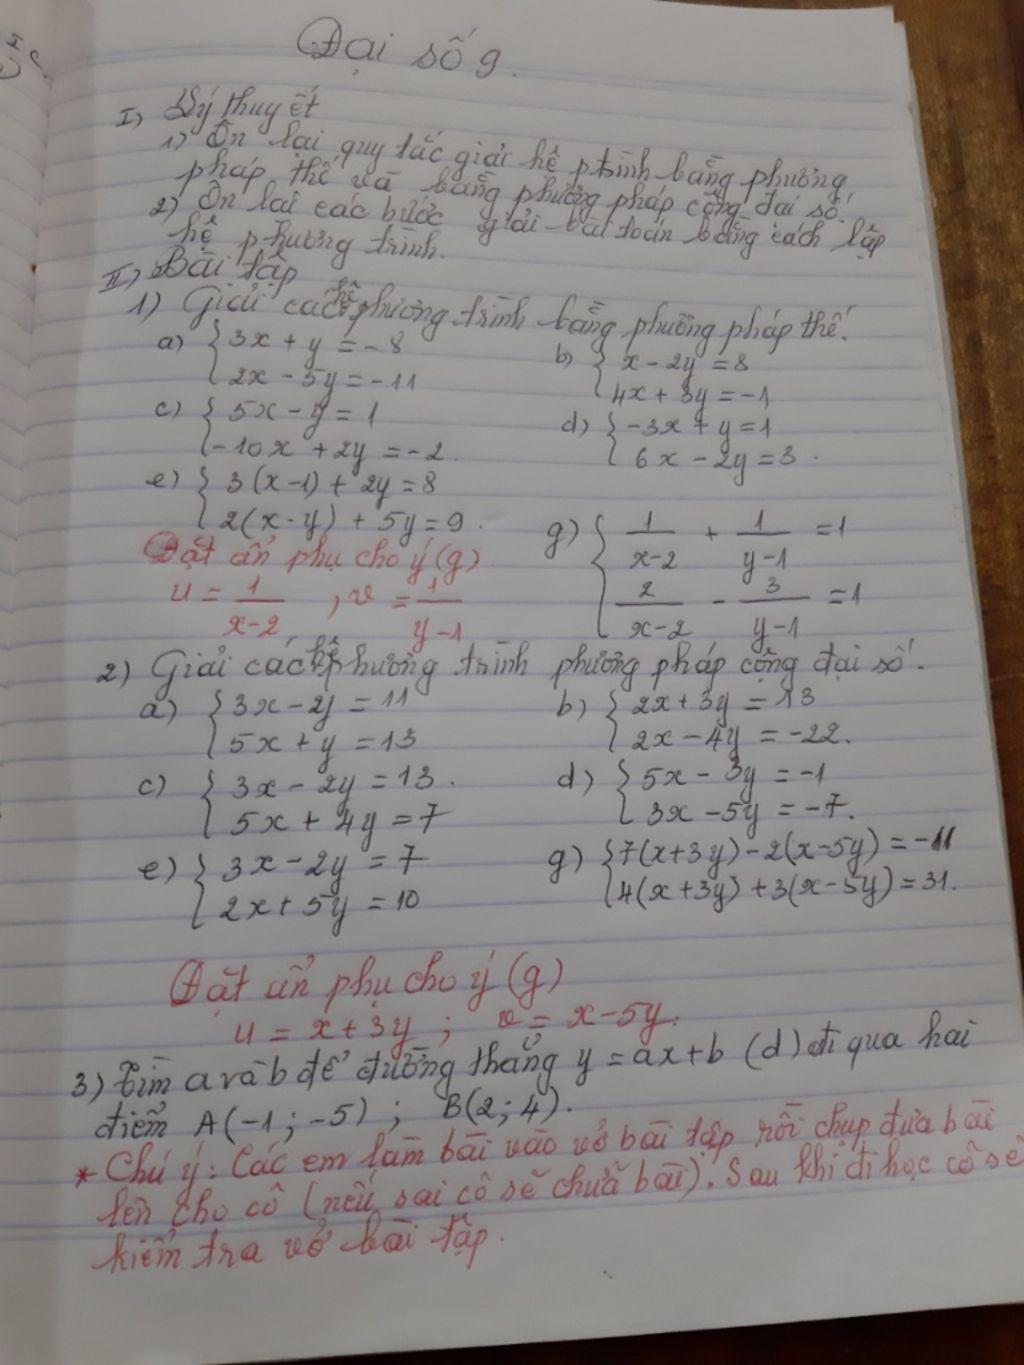 Đại số 9.
I) Lý thuyết
1) Ôn lại quy tắc giải hệ ptrình bằng phương
pháp thế và bằng phương pháp cộng đại số.
2) Ôn lại các bước giải bài toán bằng cách lập
hệ phương trình.
II) Bài tập
1) Giải các hệ phương trình bằng phương pháp thế.
a) { 3x + y = -8
2x - 5y = -11
b) { x - 2y = 8
4x + 3y = -1
c) { 5x - y = 1
-10x + 2y = -2.
d) { -3x + y = 1
6x - 2y = 3.
e) { 3(x-1) + 2y = 8
2(x-y) + 5y = 9.
g) { 1/(x-2) + 1/(y-1) = 1
2/(x-2) - 3/(y-1) = 1
Đặt ẩn phụ cho ý (g)
u = 1/(x-2) , v = 1/(y-1)
2) Giải các hệ phương trình phương pháp cộng đại số.
a) { 3x - 2y = 11
5x + y = 13
b) { 2x + 3y = 13
2x - 4y = -22.
c) { 3x - 2y = 13.
5x + 4y = 7
d) { 5x - 3y = -1
3x - 5y = -7.
e) { 3x - 2y = 7
2x + 5y = 10
g) { 7(x+3y) - 2(x-5y) = -11
4(x+3y) + 3(x-5y) = 31.
Đặt ẩn phụ cho ý (g)
u = x + 3y ; v = x - 5y.
3) Tìm a và b để đường thẳng y = ax + b (d) đi qua hai
điểm A(-1; -5) ; B(2; 4).
* Chú ý: Các em làm bài vào vở bài tập rồi chụp đưa bài
lên cho cô (nếu sai cô sẽ chữa bài). Sau khi đi học cô sẽ
kiểm tra vở bài tập.